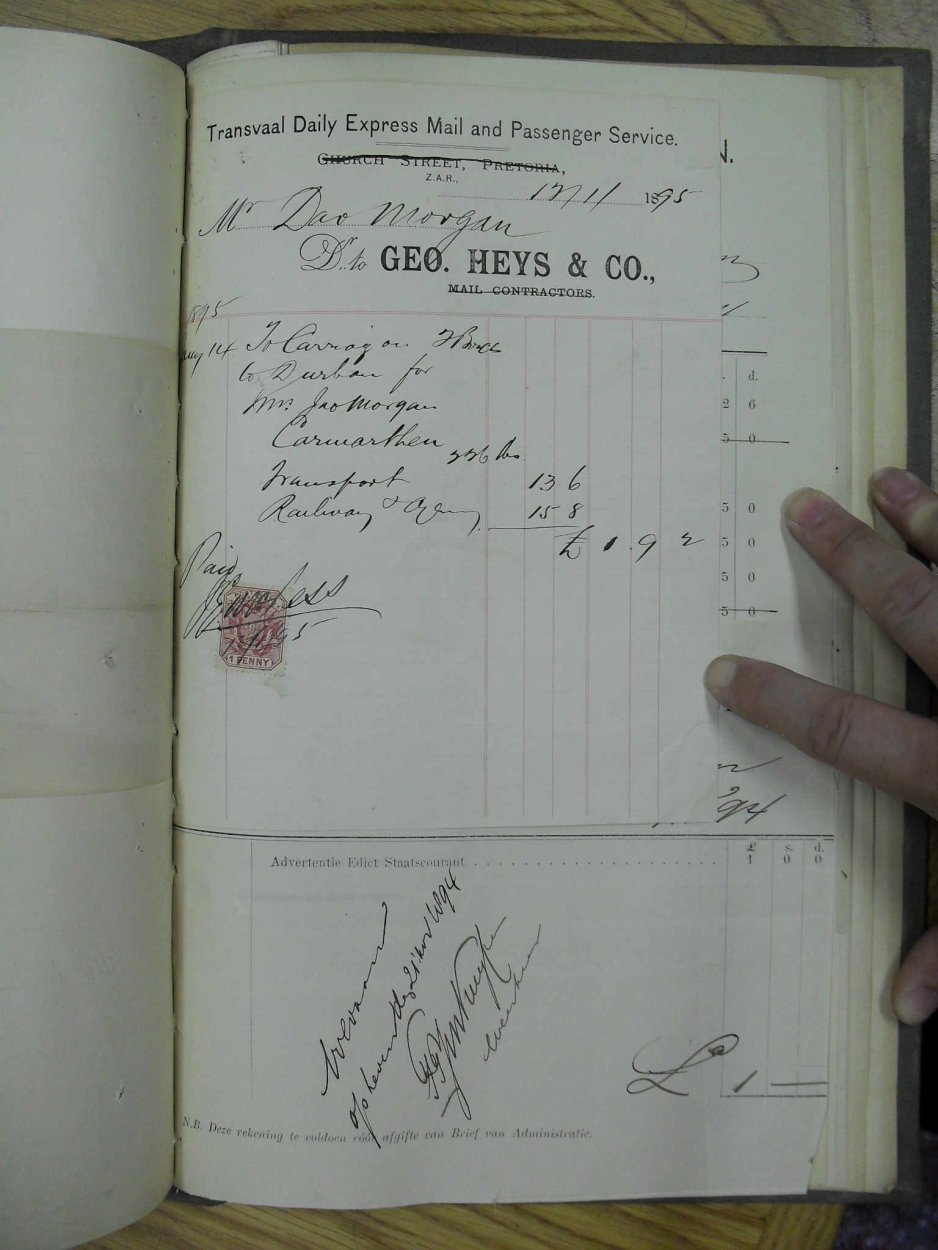 Transvaal Daily Express Mail and Passenger Service.
CHURCH STREET, PRETORIA,
Z.A.R.,
12/11 1895
Mr Dav Morgan
Dr. to GEO. HEYS & CO.,
MAIL CONTRACTORS.
1895
14 To Carriage on
to Durban for
Mrs Jao Morgan
Carmarthen
226 lbs
Transport 13 6
Railway & 15 8
£ 1 . 9 2
Paid
1 PENNY
d.
2 6
5 0
5 0
5 0
5 0
5 0
94
£ s. d.
Advertentie Edict Staatscourant 1 0 0
21 Nov 1894
£ 1 —
N.B. Deze rekening te voldoen vóór afgifte van Brief van Administratie.